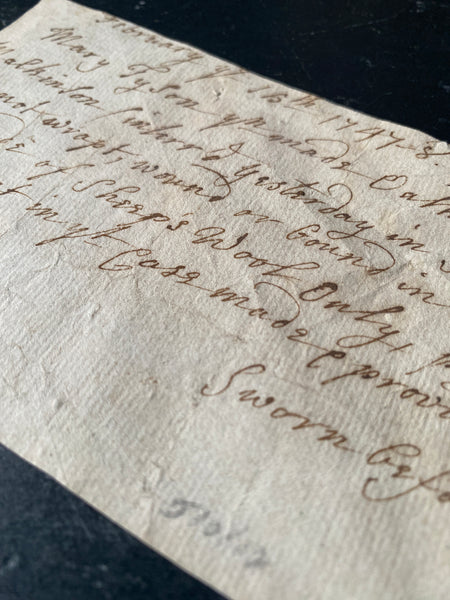 February ye 16th 1747-8
Mary Tyson yt made Oath
Interr'd Yesterday in
not wrapt, wound or bound in
of Sheep's Wool Only,
in ye Case made & provi
Sworn befo